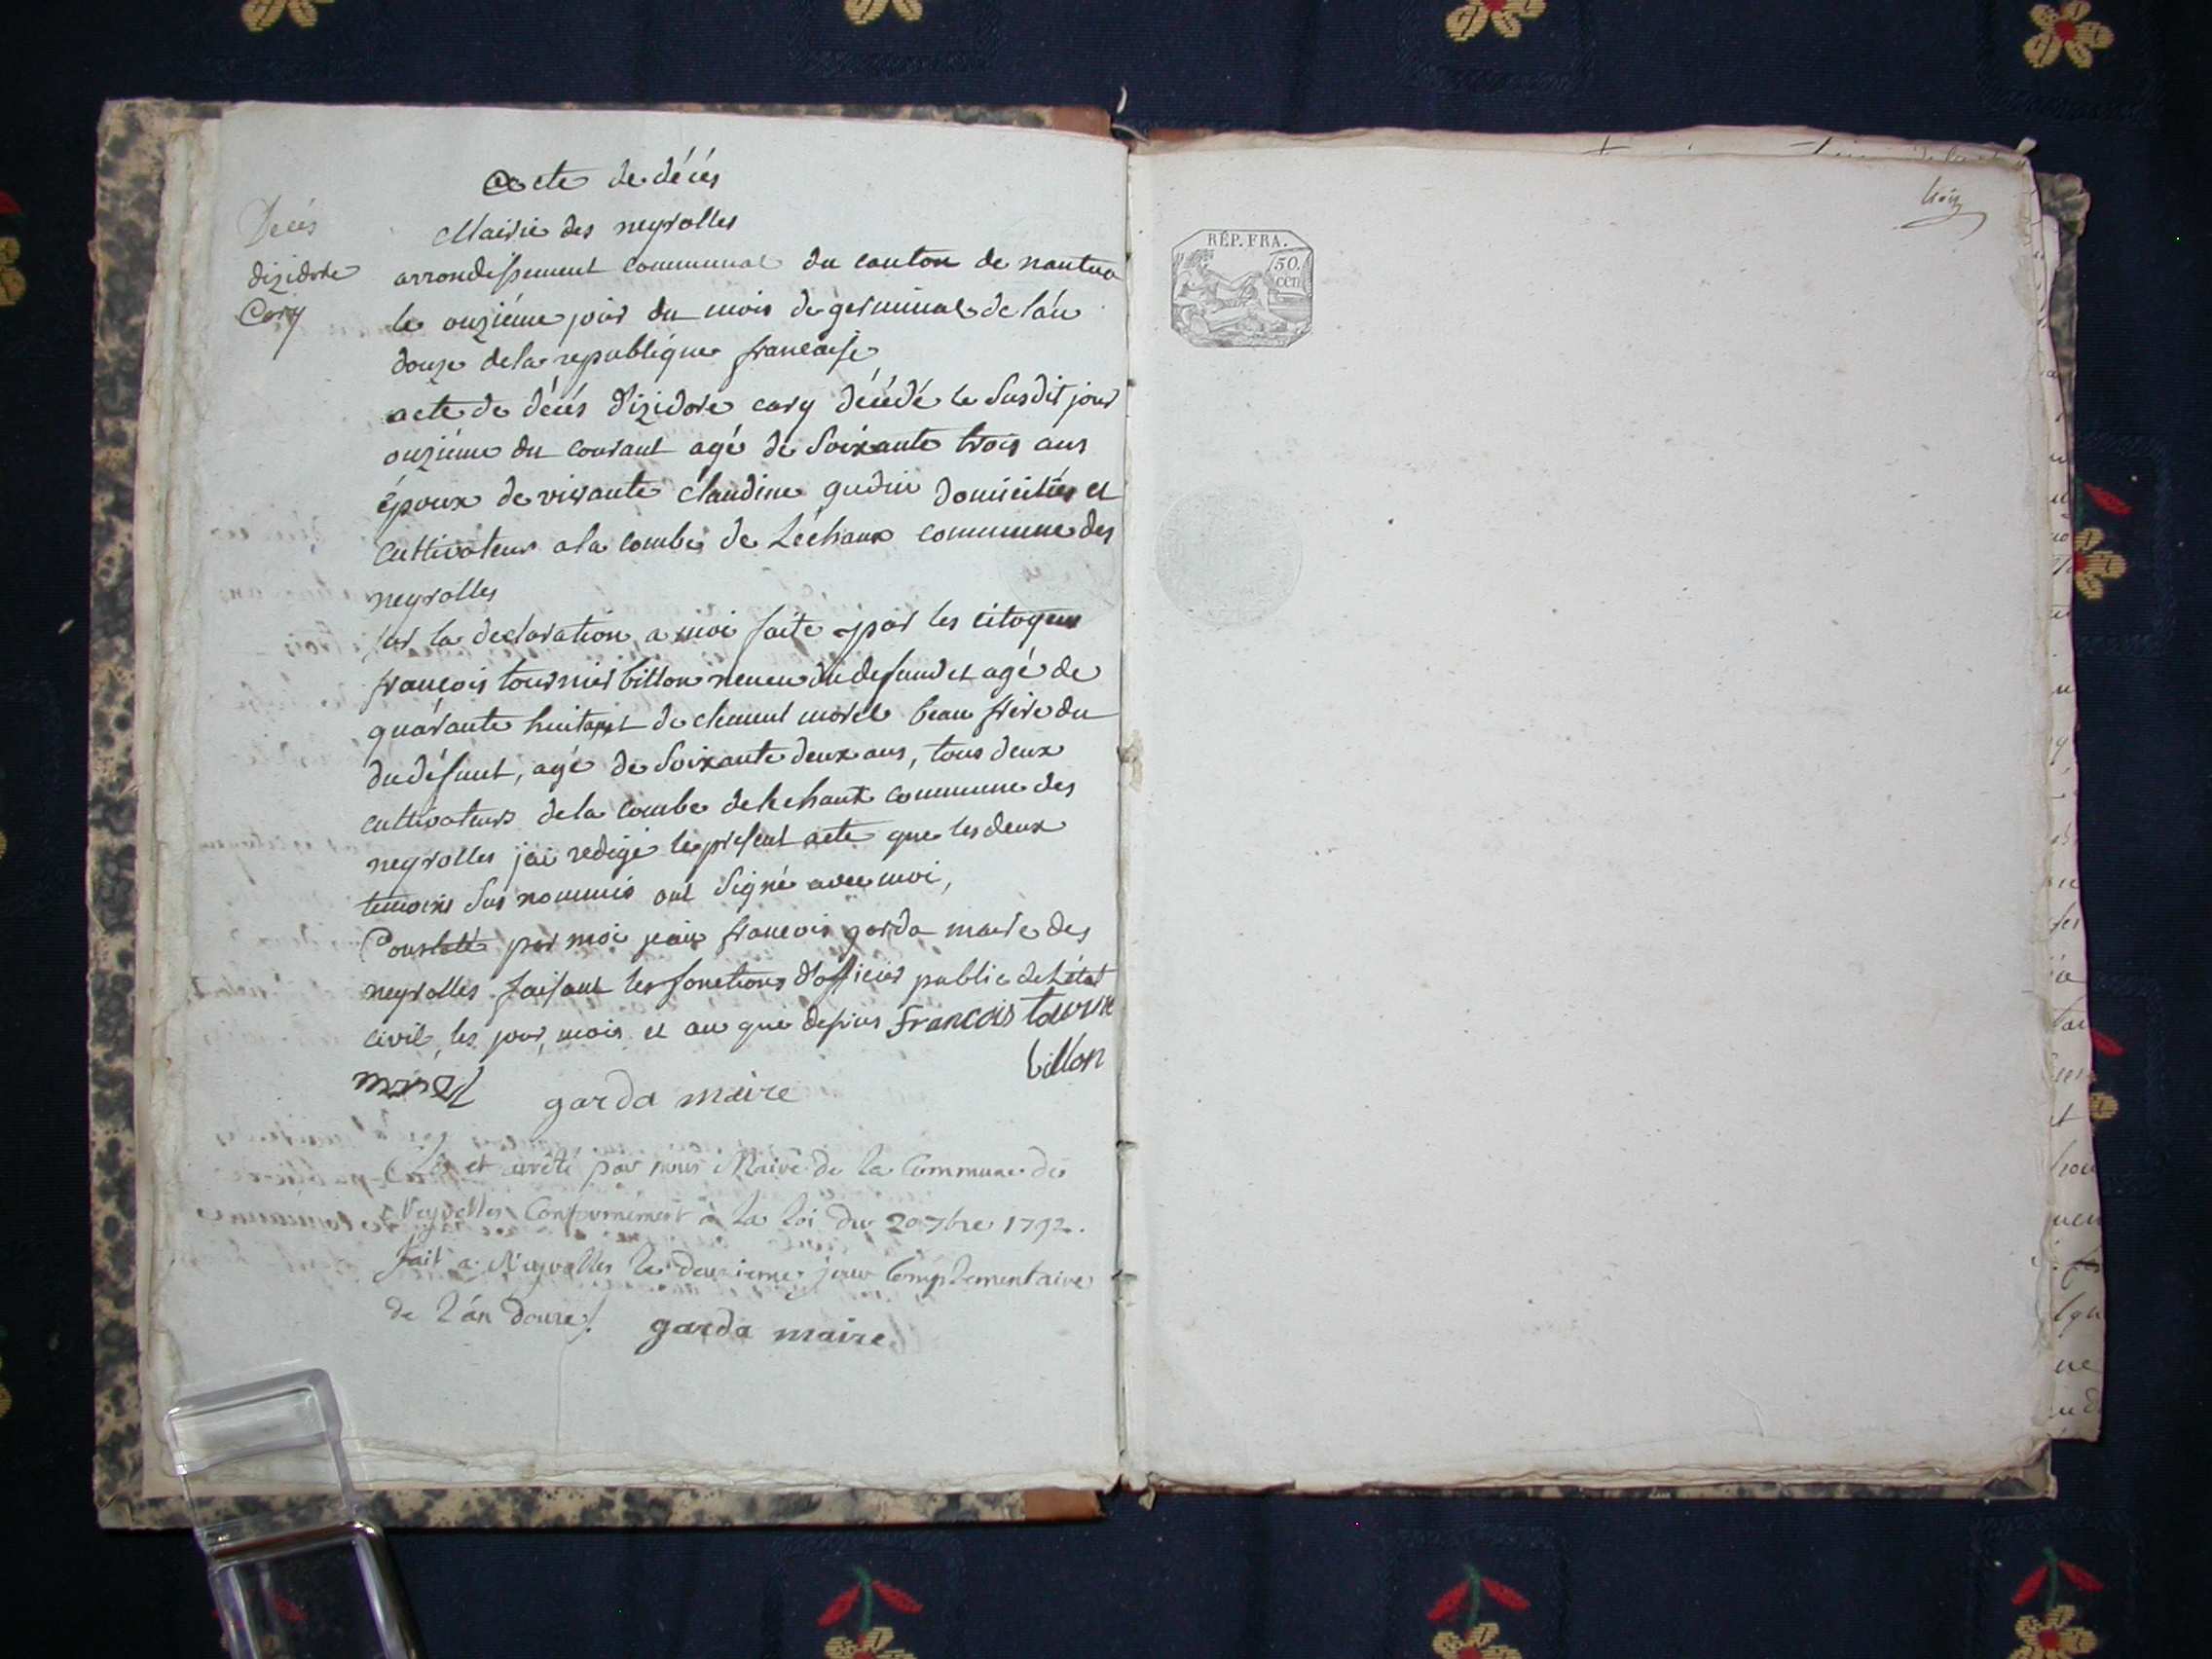 acte de décés
Mairie des neyrolles
Decés
dizidore
Cary
arrondissement communal du canton de nantua
le onziéme jour du mois de germinal de l'an
douze de la republique francaise
acte de décés d'izidore cary décédé le Susdit jour
onziéme du courant agé de Soixante trois ans
époux de vivante claudine gudin domiciliés et
cultivateurs a la combe de Léchaux commune des
neyrolles
sur la declaration a moi faite par les citoyens
francois tournier billon neveu du defund et agé de
quarante huit ans et de clement morel beau frère du
du défunt, agé de Soixante deux ans, tous deux
cultivateurs de la combe de lechaux commune des
neyrolles jai redigé le present acte que les deux
temoins Sus nommés ont Signé avec moi,
Constaté par moi jean francois garda maire des
neyrolles faisant les fonctions d'officier public de L'état
civil, les jour, mois et an que dessus francois tourne
billon
morel garda maire
Clos et arrêté par nous Maire de la Commune des
Neyrolles Conformément à la loi du 20 7bre 1792.
fait a Neyrolles le deuxieme jour Complementaire
de L'án douze/. garda maire
RÉP. FRA.
50.
CEN
trois